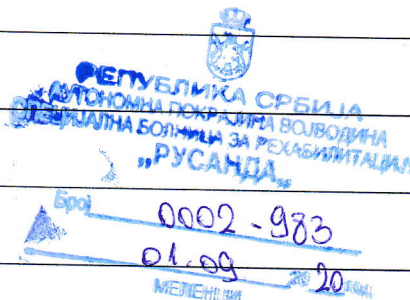 РЕПУБЛИКА СРБИЈА
АУТОНОМНА ПОКРАЈИНА ВОЈВОДИНА
СПЕЦИЈАЛНА БОЛНИЦА ЗА РЕХАБИЛИТАЦИЈУ
„РУСАНДА„
Број 0002-983
01.09 20 20 год.
МЕЛЕНЦИ